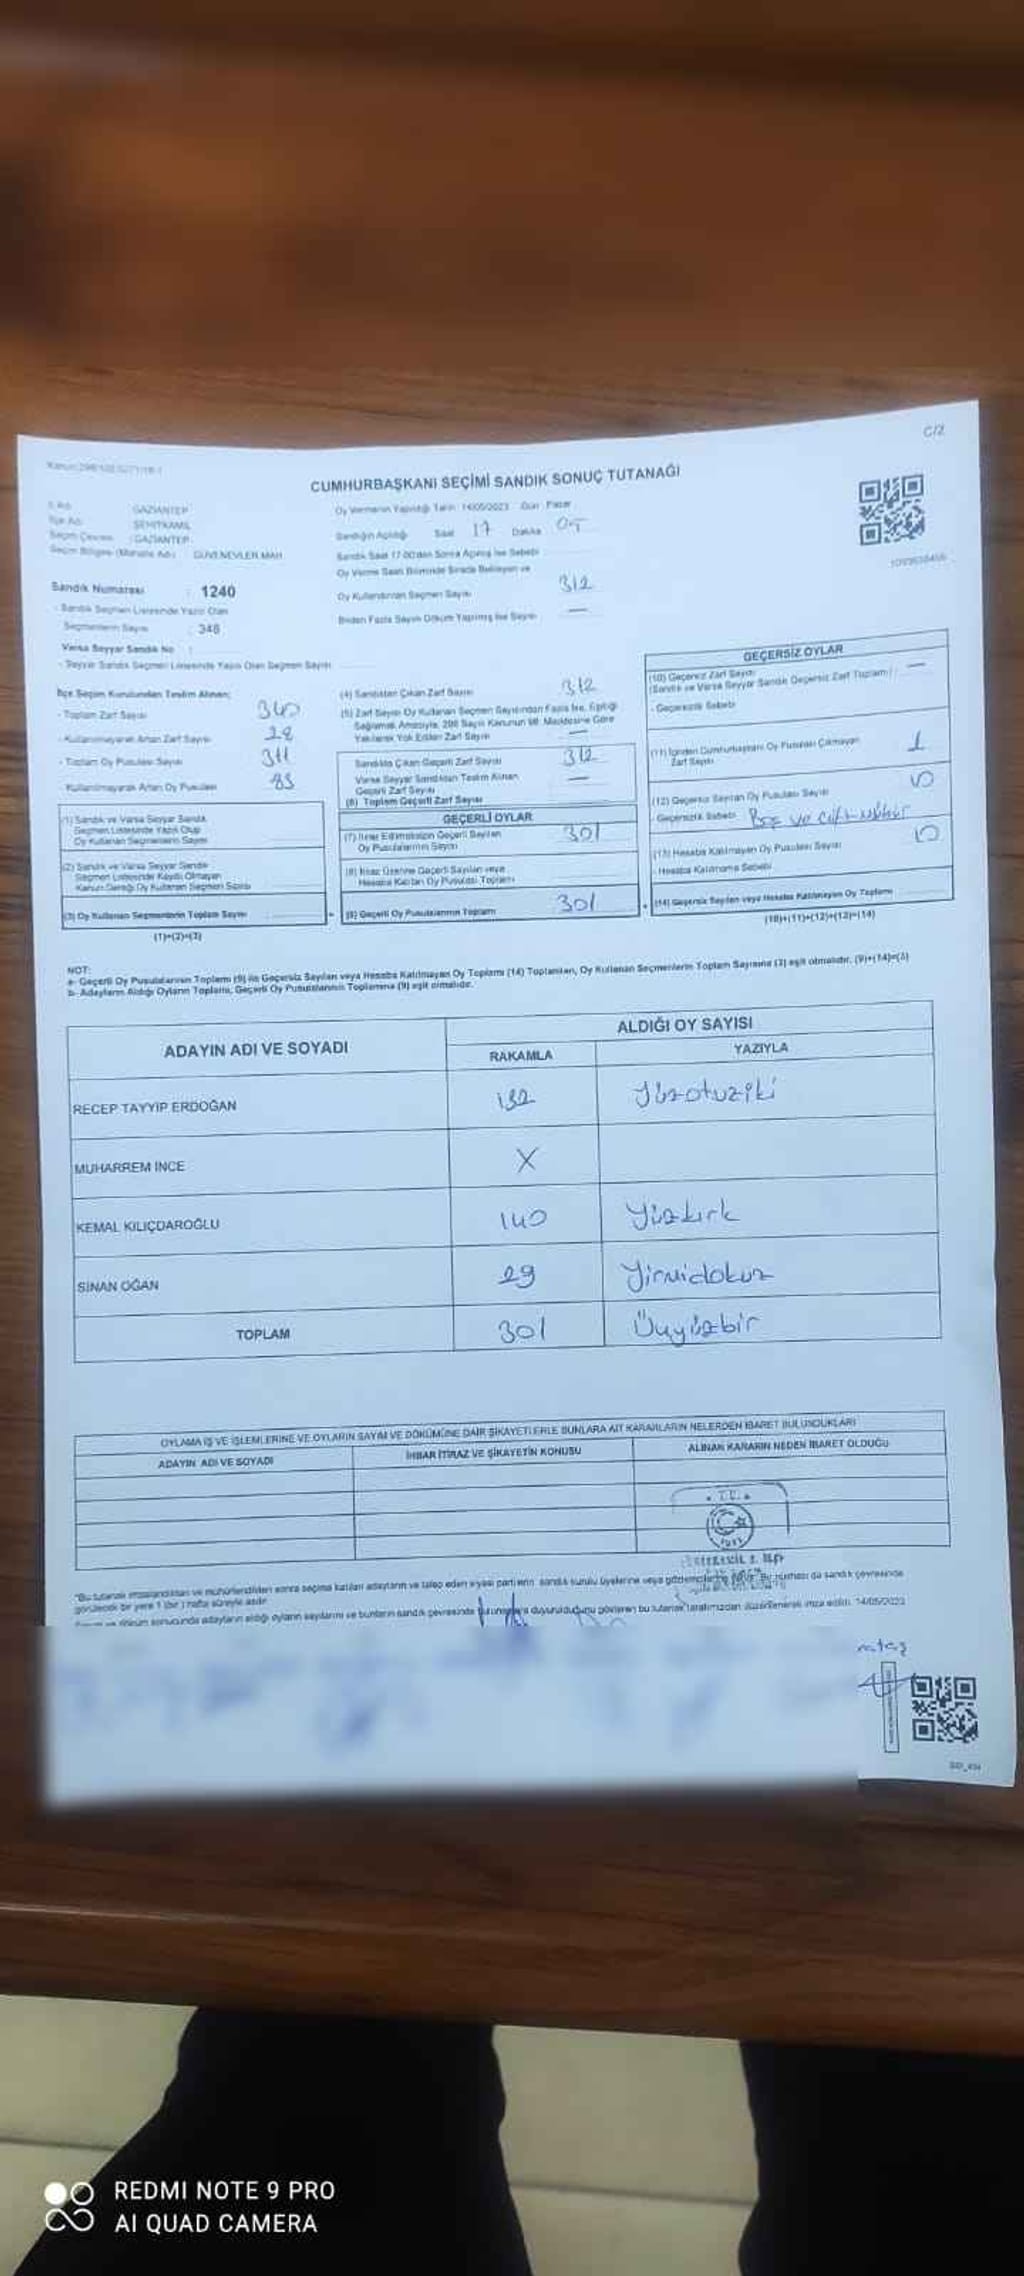 C/2
CUMHURBAŞKANI SEÇİMİ SANDIK SONUÇ TUTANAĞI
İl Adı : GAZİANTEP
İlçe Adı : ŞEHİTKAMİL
Seçim Çevresi : GAZİANTEP
Seçim Bölgesi (Mahalle Adı) : GÜVENEVLER MAH.
Oy Vermenin Yapıldığı Tarih: 14/05/2023 Gün: Pazar
Sandığın Açıldığı Saat 17 Dakika 05
Sandık Saat 17:00'den Sonra Açılmış İse Sebebi
Oy Verme Saati Bitiminde Sırada Bekleyen ve
Oy Kullandırılan Seçmen Sayısı 312
Birden Fazla Sayım Döküm Yapılmış İse Sayısı —
Sandık Numarası : 1240
- Sandık Seçmen Listesinde Yazılı Olan
Seçmenlerin Sayısı : 348
Varsa Seyyar Sandık No :
- Seyyar Sandık Seçmen Listesinde Yazılı Olan Seçmen Sayısı
İlçe Seçim Kurulundan Teslim Alınan;
- Toplam Zarf Sayısı 340
- Kullanılmayarak Artan Zarf Sayısı 28
- Toplam Oy Pusulası Sayısı
- Kullanılmayarak Artan Oy Pusulası
(1) Sandık ve Varsa Seyyar Sandık
Seçmen Listesinde Yazılı Olup
Oy Kullanan Seçmenlerin Sayısı
(2) Sandık ve Varsa Seyyar Sandık
Seçmen Listesinde Kayıtlı Olmayan
Kanun Gereği Oy Kullanan Seçmen Sayısı
(3) Oy Kullanan Seçmenlerin Toplam Sayısı
(1)+(2)=(3)
(4) Sandıktan Çıkan Zarf Sayısı 312
(5) Zarf Sayısı Oy Kullanan Seçmen Sayısından Fazla İse, Eşitliği
Sağlamak Amacıyla, 298 Sayılı Kanunun 98. Maddesine Göre
Yakılarak Yok Edilen Zarf Sayısı —
Sandıkta Çıkan Geçerli Zarf Sayısı 312
Varsa Seyyar Sandıktan Teslim Alınan
Geçerli Zarf Sayısı —
(6) Toplam Geçerli Zarf Sayısı
GEÇERLİ OYLAR
(7) İtiraz Edilmeksizin Geçerli Sayılan
Oy Pusulalarının Sayısı 301
(8) İtiraz Üzerine Geçerli Sayılan veya
Hesaba Katılan Oy Pusulası Toplamı
(9) Geçerli Oy Pusulalarının Toplamı 301
GEÇERSİZ OYLAR
(10) Geçersiz Zarf Sayısı
(Sandık ve Varsa Seyyar Sandık Geçersiz Zarf Toplamı) —
- Geçersizlik Sebebi
(11) İçinden Cumhurbaşkanı Oy Pusulası Çıkmayan
Zarf Sayısı 1
(12) Geçersiz Sayılan Oy Pusulası Sayısı
- Geçersizlik Sebebi Boş ve çift mühür
(13) Hesaba Katılmayan Oy Pusulası Sayısı
- Hesaba Katılmama Sebebi
(14) Geçersiz Sayılan veya Hesaba Katılmayan Oy Toplamı
(10)+(11)+(12)+(13)=(14)
NOT:
a- Geçerli Oy Pusulalarının Toplamı (9) ile Geçersiz Sayılan veya Hesaba Katılmayan Oy Toplamı (14) Toplamları, Oy Kullanan Seçmenlerin Toplam Sayısına (3) eşit olmalıdır. (9)+(14)=(3)
b- Adayların Aldığı Oyların Toplamı, Geçerli Oy Pusulalarının Toplamına (9) eşit olmalıdır.
ADAYIN ADI VE SOYADI
ALDIĞI OY SAYISI
RAKAMLA YAZIYLA
RECEP TAYYİP ERDOĞAN 132 Yüzotuziki
MUHARREM İNCE X
KEMAL KILIÇDAROĞLU 140 Yüzkırk
SİNAN OĞAN 29 Yirmidokuz
TOPLAM 301 Üçyüzbir
OYLAMA İŞ VE İŞLEMLERİNE VE OYLARIN SAYIM VE DÖKÜMÜNE DAİR ŞİKAYETLERLE BUNLARA AİT KARARLARIN NELERDEN İBARET BULUNDUKLARI
ADAYIN ADI VE SOYADI İHBAR İTİRAZ VE ŞİKAYETİN KONUSU ALINAN KARARIN NEDEN İBARET OLDUĞU
T.C.
"Bu tutanak imzalandıktan ve mühürlendikten sonra seçime katılan adayların ve talep eden siyasi partilerin sandık kurulu üyelerine veya gözlemcilerine verilir. Bir nüshası da sandık çevresinde
görülecek bir yere 1 (bir) hafta süreyle asılır.
Sayım ve döküm sonucunda adayların aldığı oyların sayılarını ve bunların sandık çevresinde bulunanlara duyurulduğunu gösteren bu tutanak tarafımızdan düzenlenerek imza edildi. 14/05/2023
REDMI NOTE 9 PRO
AI QUAD CAMERA